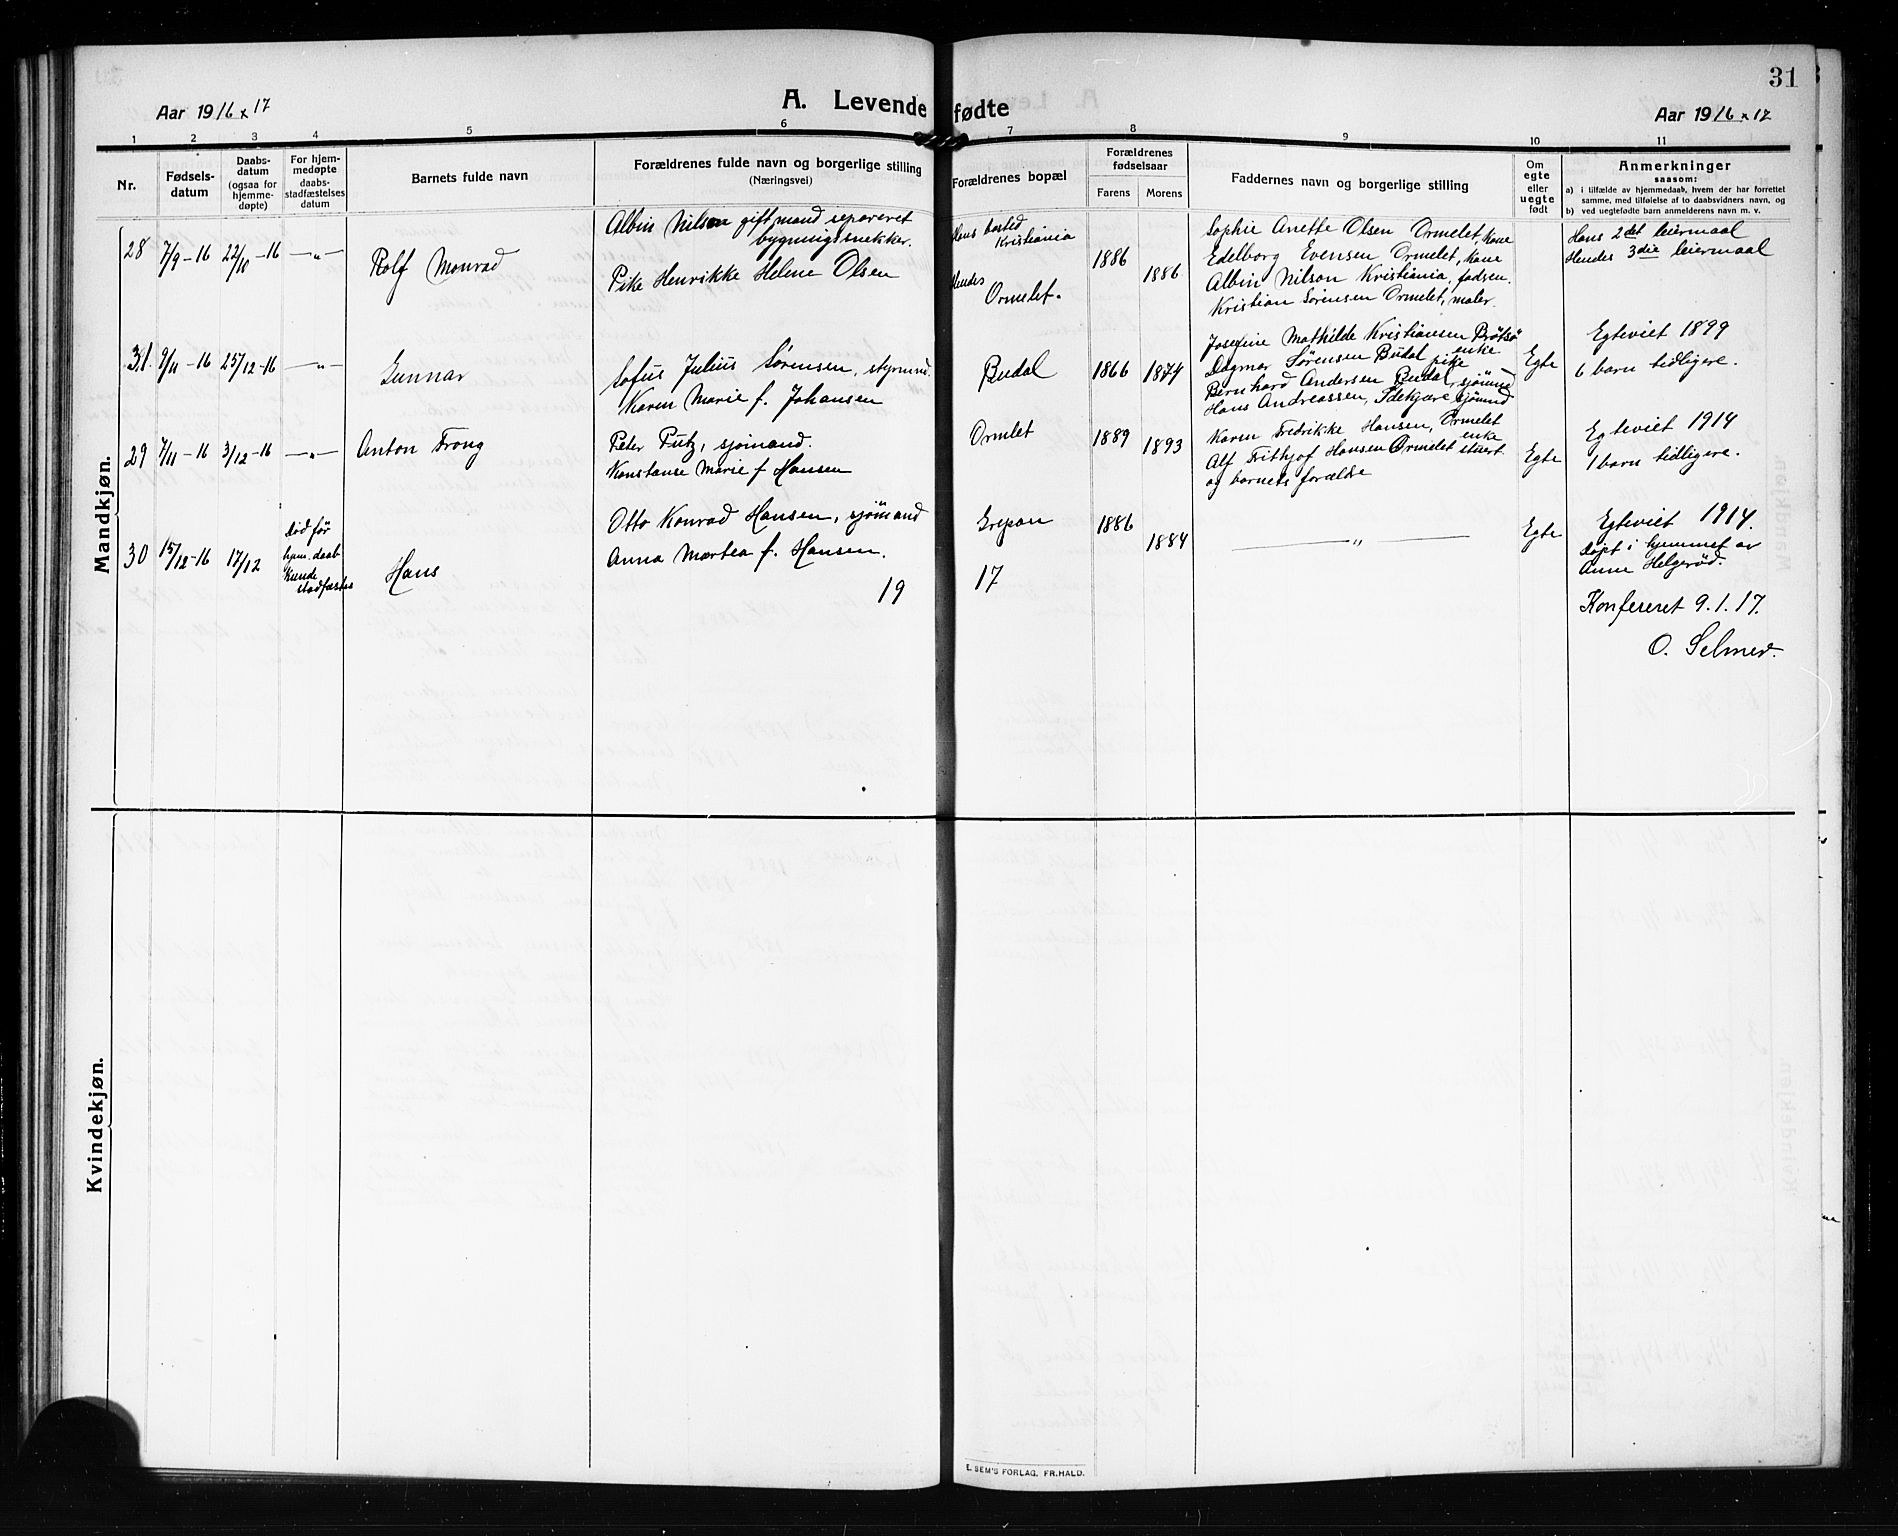 31
Aar 1916 x 17
A. Levende fødte
Aar 1916 x 17
1 2 3 4 5 6 7 8 9 10 11
Nr.
Fødsels-
datum
Daabs-
datum
(ogsaa for
hjemme-
døpte)
For hjem-
medøpte
daabs-
stadfæstelses
datum
Barnets fulde navn
Forældrenes fulde navn og borgerlige stilling
(Næringsvei)
Forældrenes bopæl
Forældrenes
fødselsaar
Farens
Morens
Faddernes navn og borgerlige stilling
Om
egte
eller
uegte
født
Anmerkninger
saasom:
a) i tilfælde av hjemmedaab, hvem der har forrettet
samme, med tilføielse af to daabsvidners navn, og
b) ved uegtefødt barn anmelderens navn m. v.
Mandkjøn.
28 7/9-16 22/10-16 —„—
Rolf Monrad
Albin Nilson gift mand separeret
bygningssnekker.
Pike Henrikke Helene Olsen
Hans bosted
Kristiania
Hendes
Ormelet.
1886
1886
Sophie Anette Olsen Ormelet, kone
Edelborg Evensen Ormelet, kone
Albin Nilson Kristiania, fadsen.
Kristian Sørensen Ormelet, maler.
Hans 2det leiermaal
Hendes 3die leiermaal
31. 9/11-16 25/12-16 —„—
Gunnar
Sofus Julius Sørensen, styrmnd.
Karen Marie f. Johansen
Budal
1866
1874
Josefine Mathilde Kristiansen Brøtsø
enke
Dagmar Sørensen Budal pike
Bernhard Andersen Budal, sjømnd
Hans Andreassen, sjømnd
Egte
Egteviet 1899
6 barn tidligere.
29 7/11-16 3/12-16 —„—
Anton Frong
Peter Putz, sjømand.
Konstanse Marie f Hansen
Ormlet
1889
1893
Karen Fredrikke Hansen, Ormelet
enke
Alf Fithjof Hansen Ormelet stuert
og barnets forælde
Egte
Egteviet 1914
1 barn tidligere.
30 15/12-16 17/12
død før
hjem.daab
kunde
stadfæstes
Hans
Otto Konrad Hansen, sjømand
Anna Martea f. Hansen.
Grepan
1886
1884
—„—
Egte
Egteviet 1914.
døpt i hjemmet av
Anne Helgerød.
19 17
Konfereret 9.1.17.
O. Selmer.
Kvindekjøn.
E. SEM'S FORLAG, FR.HALD.